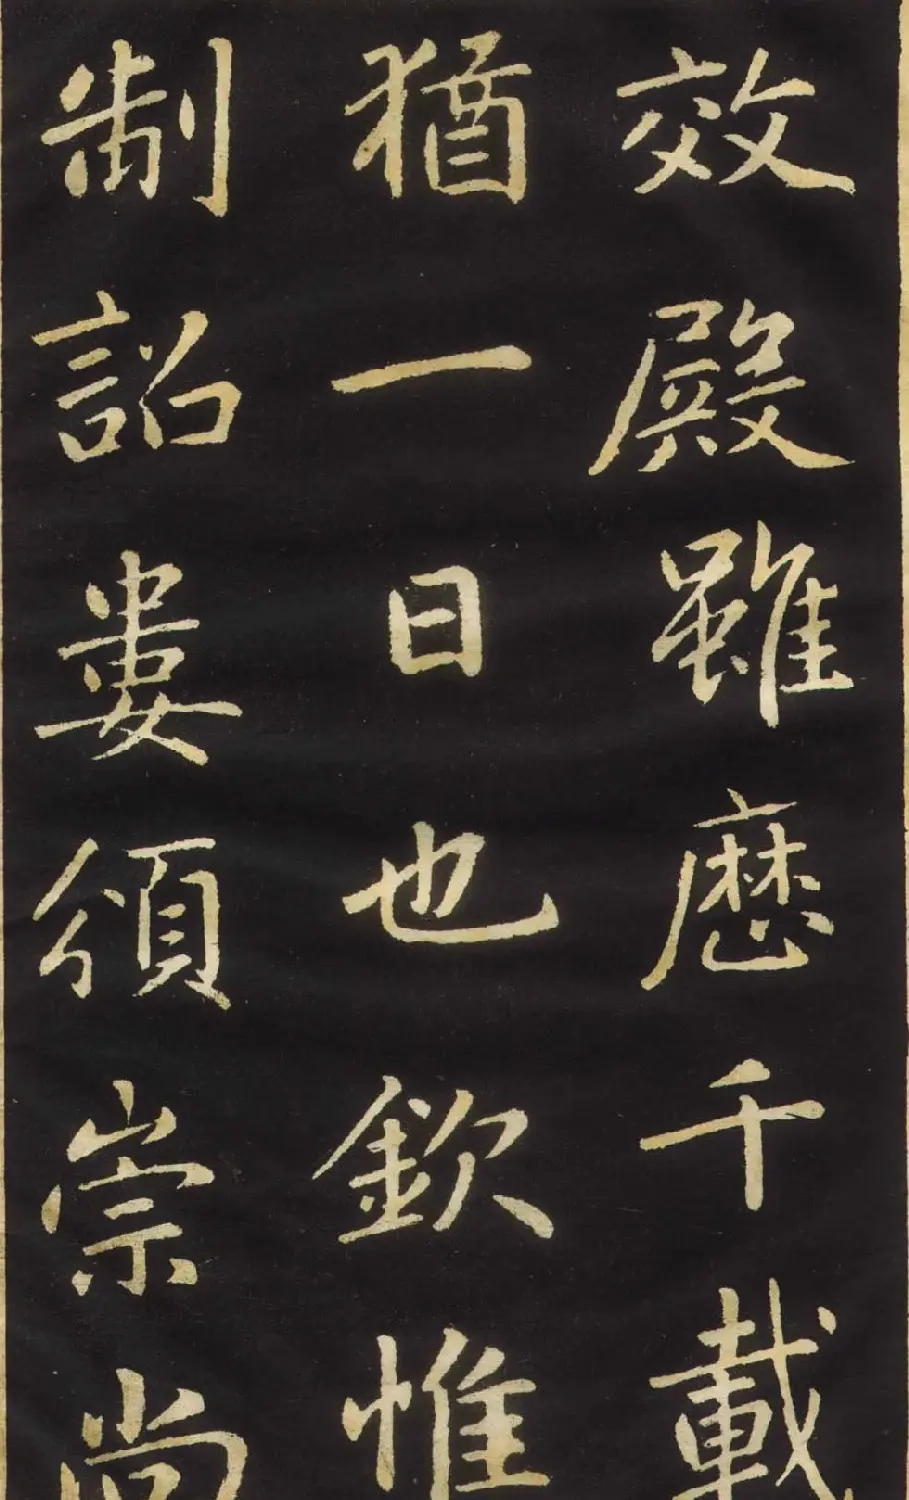 效殿雖歷千載
猶一日也欽惟
制詔婁頒崇尚